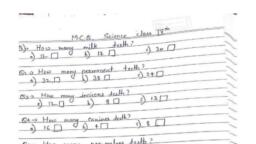 M.C.Q. Science class IVth
Q1→ How many milk teeth?
a) 12 □ b) 18 □ c) 20 □
Q2→ How many permanent teeth?
a) 32 □ b) 28 □ c) 24 □
Q3→ How many incisors teeth?
a) 12 □ b) 8 □ c) 13 □
Q4→ How many canines teeth?
a) 16 □ b) 4 □ c) 8 □
How many teeth?